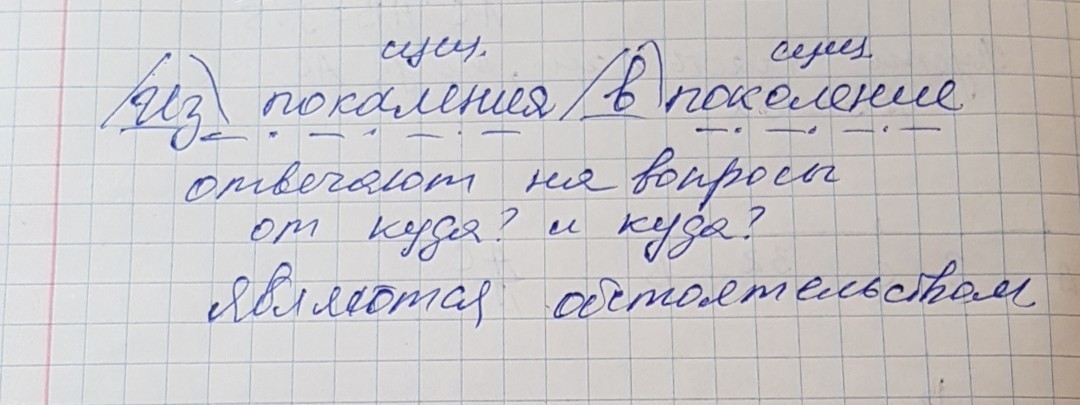 сущ. сущ.
(из) покаления (в) поколение
отвечают на вопросы
от куда? и куда?
являются обстоятельством